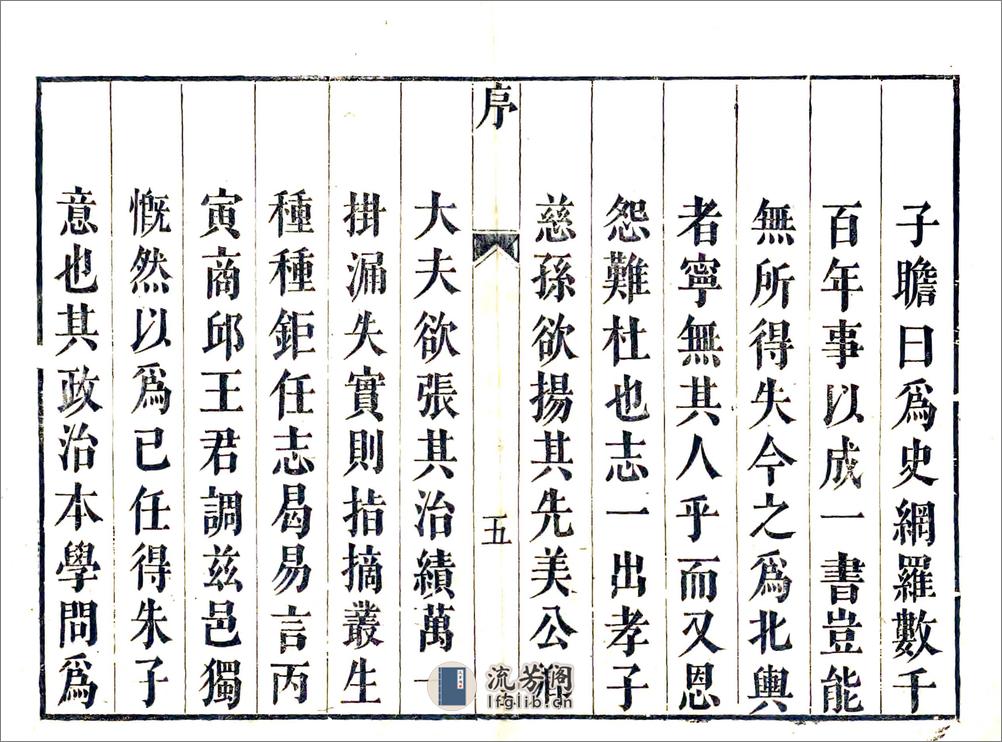 子瞻曰爲史網羅數千
百年事以成一書豈能
無所得失今之爲北輿
者寧無其人乎而又恩
怨難杜也志一出孝子
慈孫欲揚其先美公卿
序
五
大夫欲張其治績萬一
掛漏失實則指摘叢生
種種鉅任志曷易言丙
寅商邱王君調兹邑獨
慨然以爲已任得朱子
意也其政治本學問爲
流芳阁
lfglib.cn